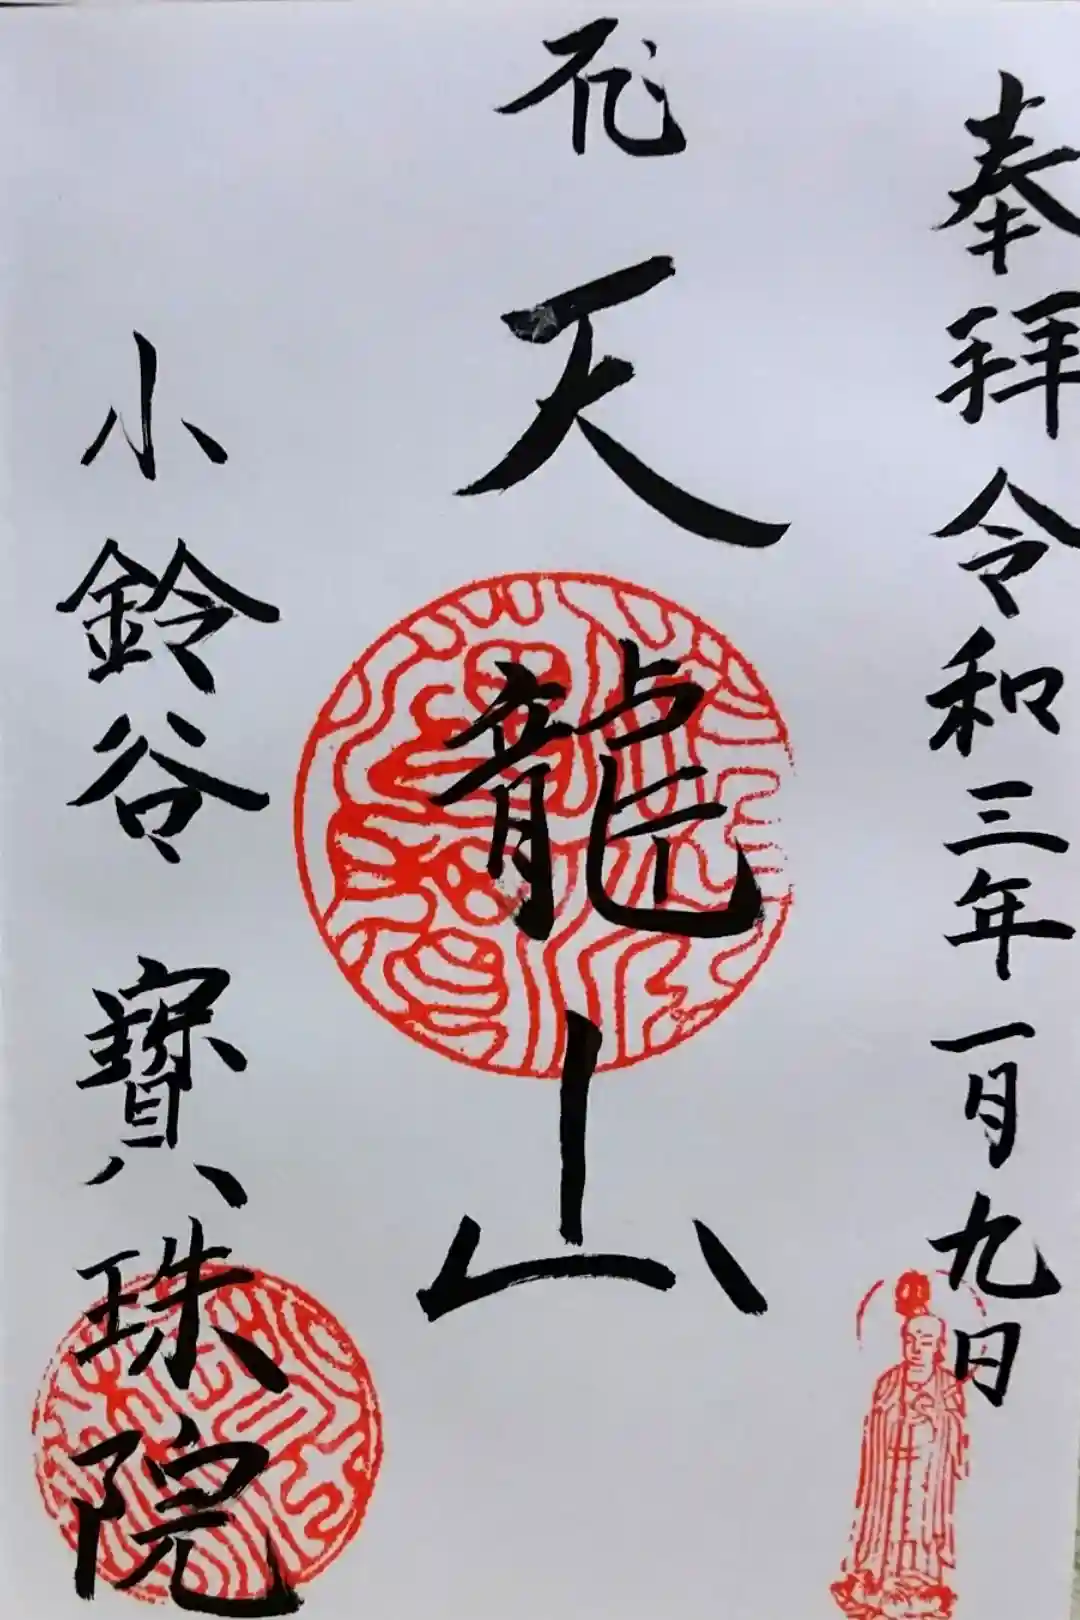 奉拜 令和三年一月九日
天龍山
小鈴谷 寶珠院